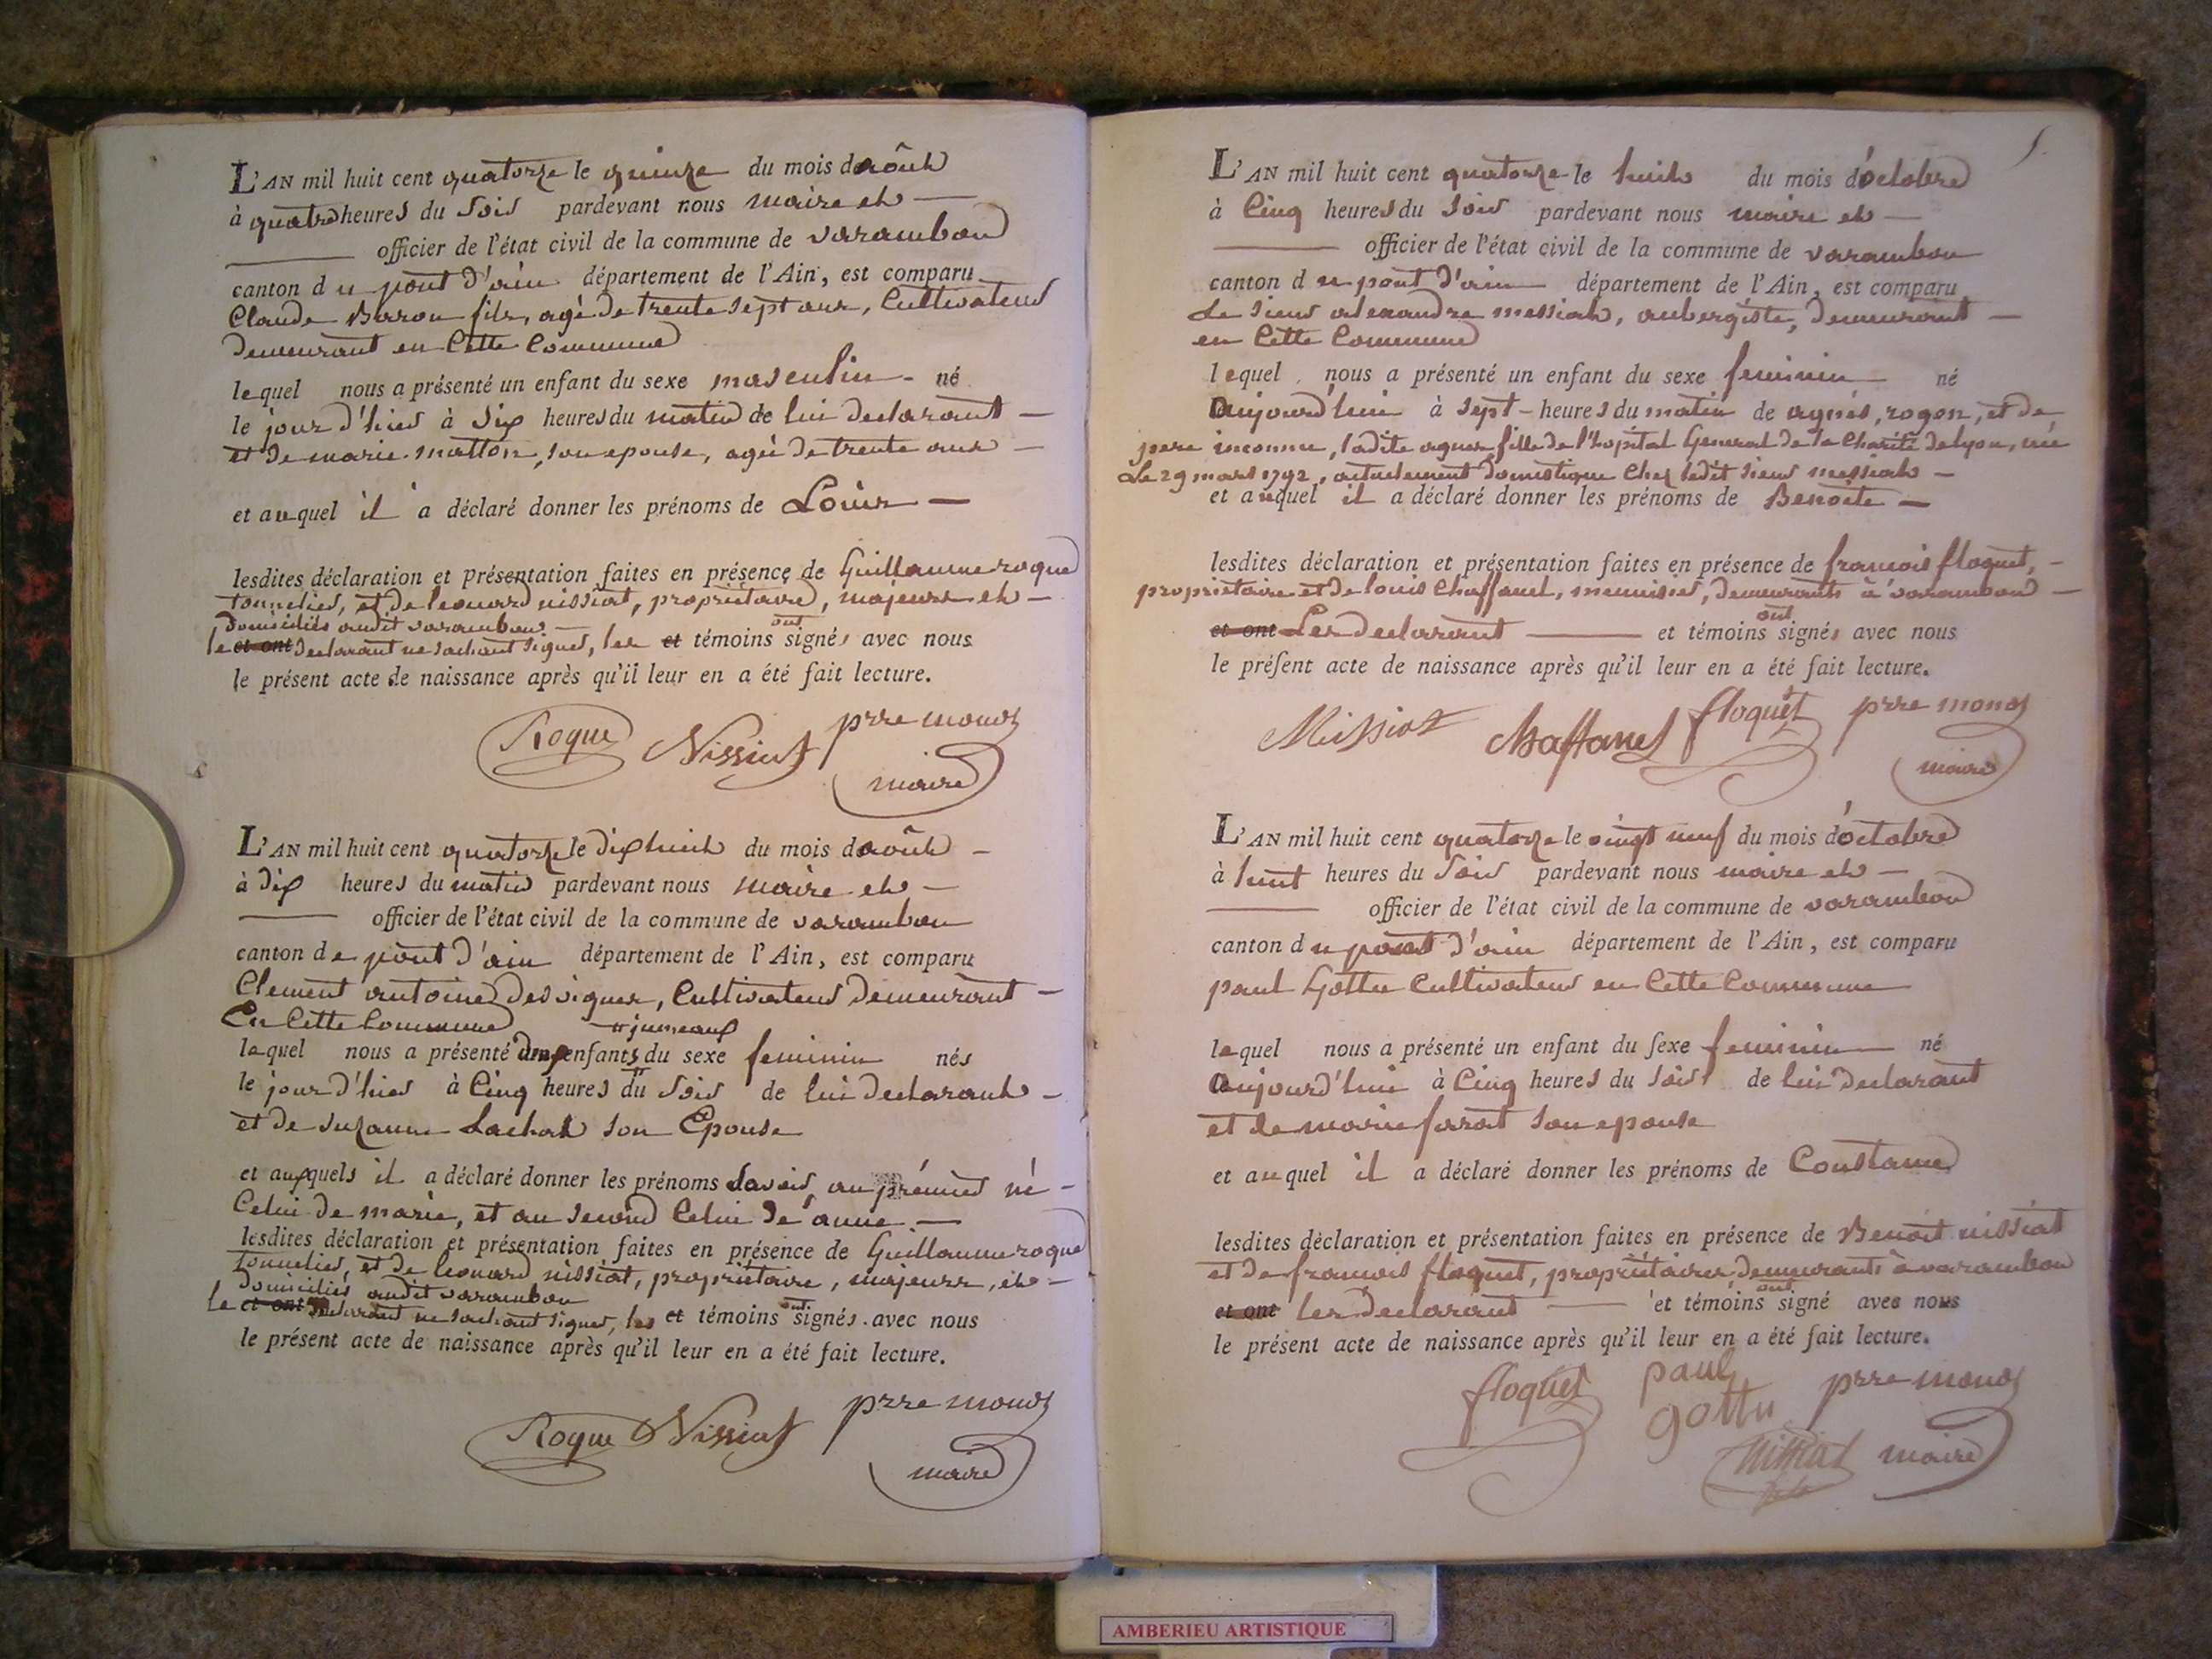 L'AN mil huit cent quatorze le quinze du mois daôut
à quatre heures du soir pardevant nous maire et —
officier de l'état civil de la commune de varambon
canton du pont d'ain département de l'Ain, est comparu
Claude Baron fils, agé de trente sept ans, Cultivateur
demeurant en Cette Commune
lequel nous a présenté un enfant du sexe masculin - né
le jour d'hier à six heures du matin de lui declarant —
et de marie matton, son epouse, agée de trente ans —
et auquel il a déclaré donner les prénoms de Louis —
lesdites déclaration et présentation faites en présence de Guillaume roque
tonnelier, et de leonard nissiat, proprietaire, majeurs et —
domiciliés audit varambon —
le et ont declarant ne sachant signer, les et témoins ont signés avec nous
le présent acte de naissance après qu'il leur en a été fait lecture.
Roque Nissiat prre monoz
maire
L'AN mil huit cent quatorze le dix huit du mois daôut —
à dix heures du matin pardevant nous maire et —
officier de l'état civil de la commune de varambon
canton de pont d'ain département de l'Ain, est comparu
Clement antoine desvignes, Cultivateur demeurant —
En Cette Commune jumeaux
lequel nous a présenté deux enfants du sexe feminin nés
le jour d'hier à Cinq heures du soir de lui declarant —
et de suzanne Lachat son Epouse
et auxquels il a déclaré donner les prénoms savoir, au prémier né —
Celui de marie, et au second Celui de anne —
lesdites déclaration et présentation faites en présence de Guillaume roque
tonnelier, et de leonard nissiat, propriétaire, majeurs, et —
domiciliés audit varambon
le et ont declarant ne sachant signer, les et témoins ont signés avec nous
le présent acte de naissance après qu'il leur en a été fait lecture.
Roque Nissiat prre monoz
maire
L'AN mil huit cent quatorze le huit du mois d'octobre
à Cinq heures du soir pardevant nous maire et —
officier de l'état civil de la commune de varambon
canton du pont d'ain département de l'Ain, est comparu
Le sieur alexandre messiat, aubergiste, demeurant —
en Cette Commune
lequel nous a présenté un enfant du sexe feminin né
aujourd'hui à sept heures du matin de agnès, rogon, et de
pere inconnu, ladite agnes fille de l'hopital General de la Charité de lyon, née
Le 29 mars 1792, actuelement domestique Chez ledit sieur messiat —
et auquel il a déclaré donner les prénoms de Benoite —
lesdites déclaration et présentation faites en présence de francois floquet, —
propriétaire et de louis Chaffanel, menuisier, demeurants à varambon —
et ont Les declarant — et témoins ont signés avec nous
le présent acte de naissance après qu'il leur en a été fait lecture.
Missiat Chaffanel floquet prre monoz
maire
L'AN mil huit cent quatorze le vingt neuf du mois d'octobre
à huit heures du soir pardevant nous maire et —
officier de l'état civil de la commune de varambon
canton du pont d'ain département de l'Ain, est comparu
paul Gottu Cultivateur en Cette Commune
lequel nous a présenté un enfant du sexe feminin né
aujourd'hui à Cinq heures du soir de lui declarant
et de marie farat son epouse
et auquel il a déclaré donner les prénoms de Constance
lesdites déclaration et présentation faites en présence de Benoit nissiat
et de francois floquet, propriétaires demeurants à varambon
et ont les declarant — et témoins ont signé avec nous
le présent acte de naissance après qu'il leur en a été fait lecture.
floquet paul gottu prre monoz
nissiat maire
AMBERIEU ARTISTIQUE